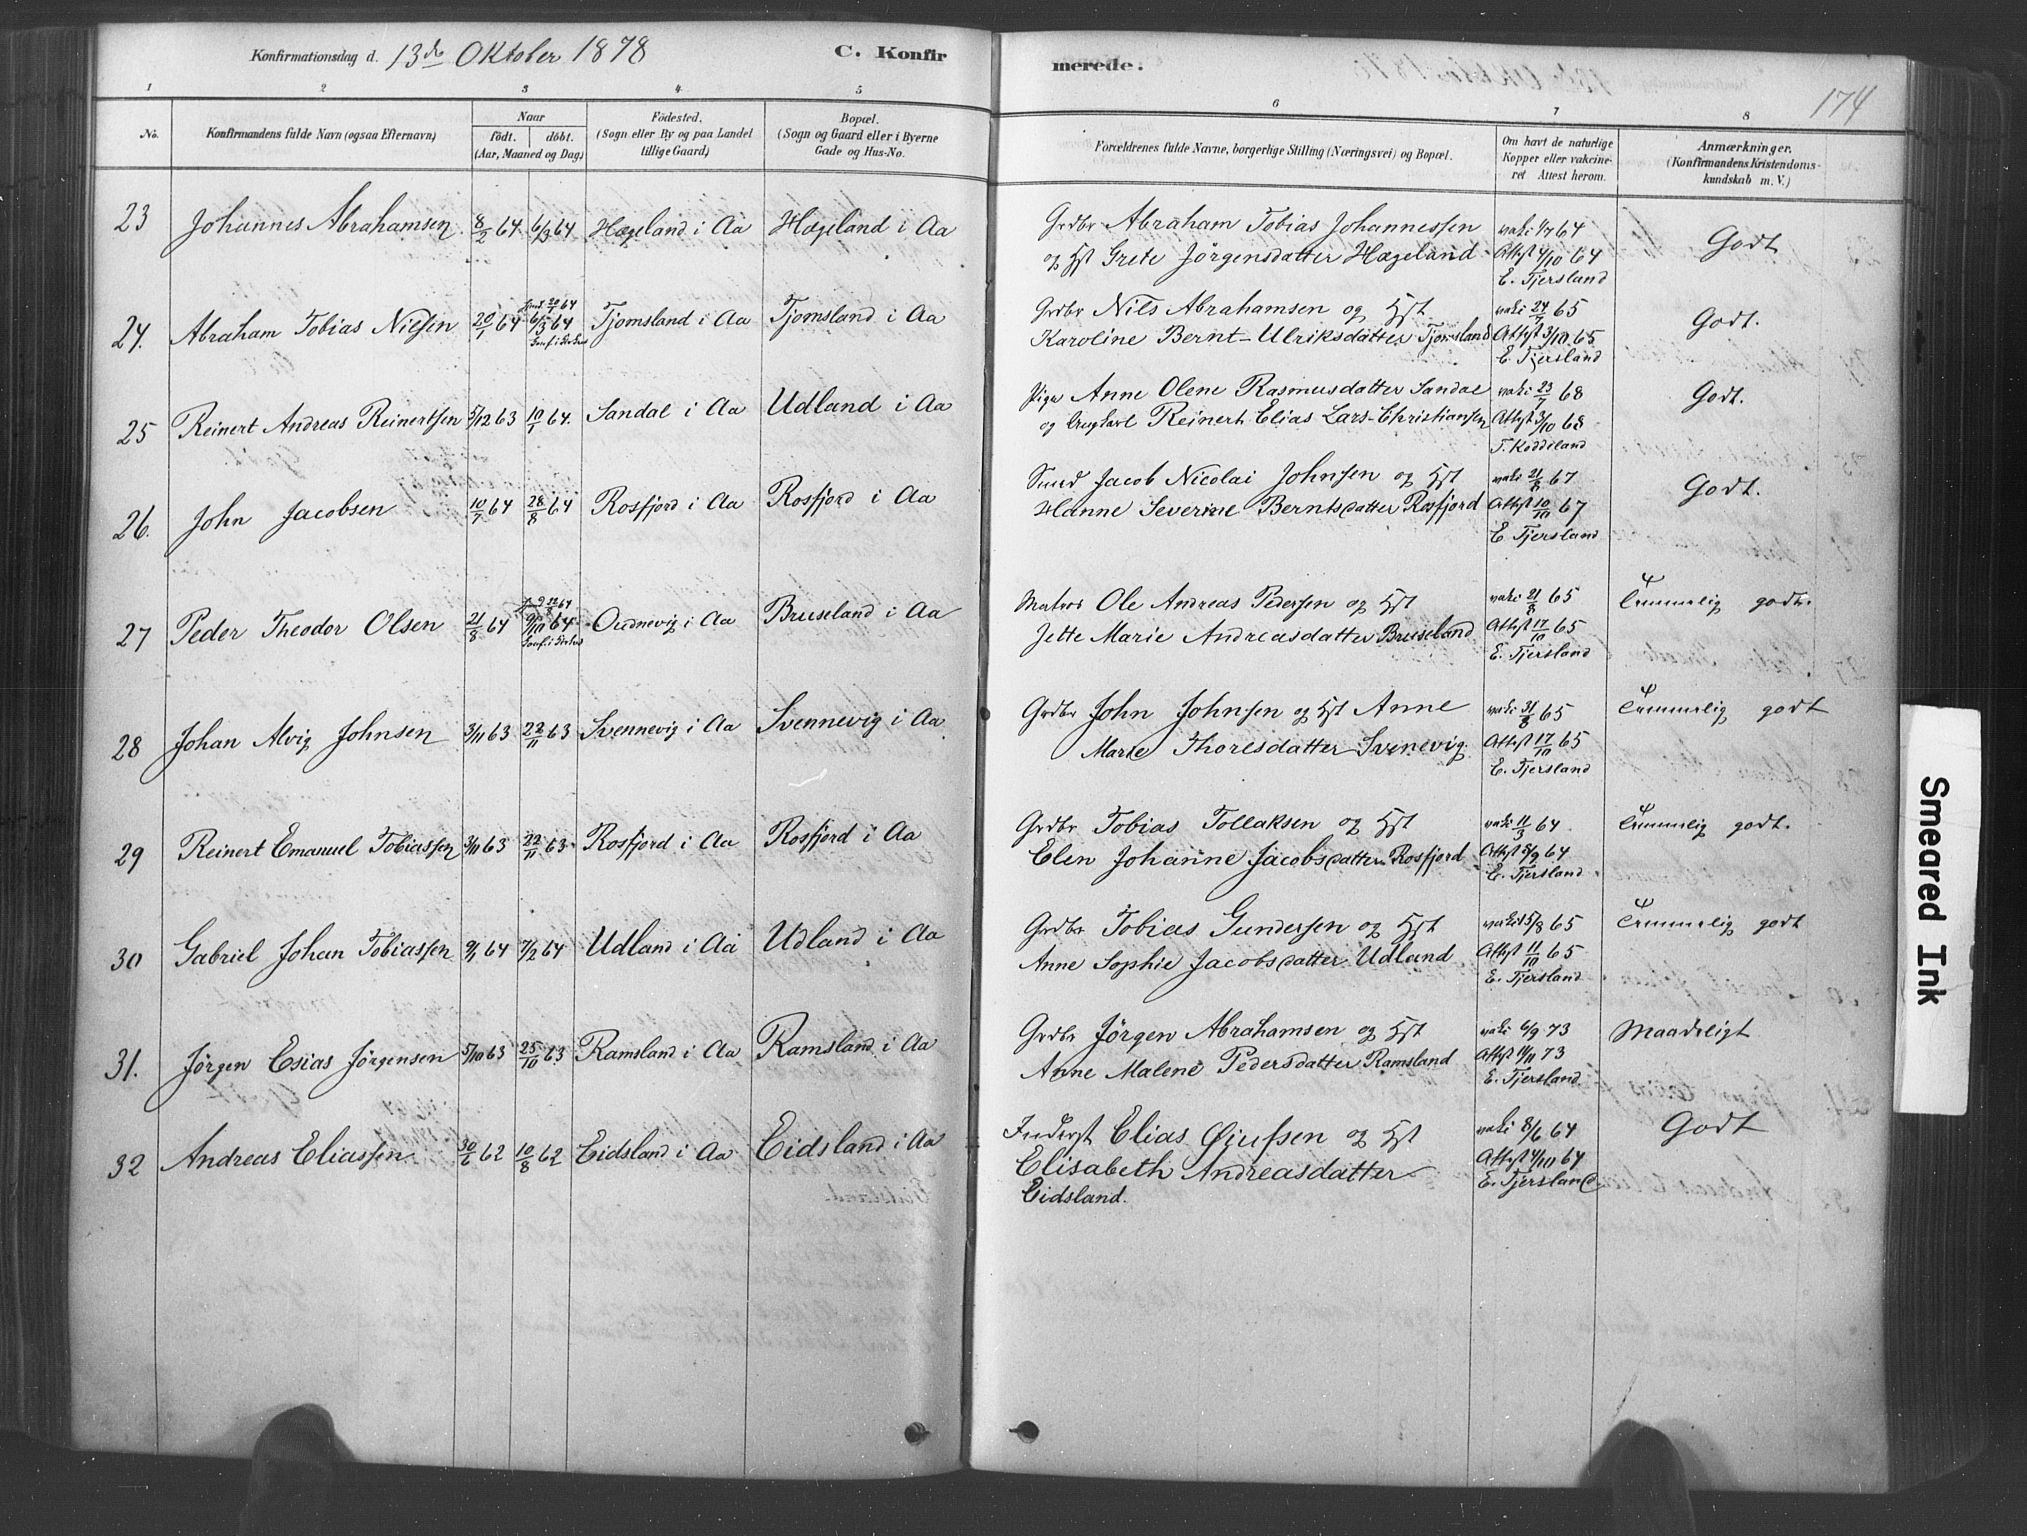 Konfirmationsdag d. 13de Oktober 1878 C. Konfir merede.
174
1 2 3 4 5 6 7 8
No. Konfirmandens fulde Navn (ogsaa Efternavn) Naar født. døbt. (Aar, Maaned og Dag) Fødested. (Sogn eller By og paa Landet tillige Gaard) Bopæl. (Sogn og Gaard eller i Byerne Gade og Hus-No. Forældrenes fulde Navne, borgerlige Stilling (Næringsvei) og Bopæl. Om havt de naturlige Kopper eller vakcineret Attest herom. Anmærkninger. (Konfirmandens Kristendomskundskab m.V.)
23 Johannes Abrahamsen 8/2 64 6/3 64 Hægeland i Aa Hægeland i Aa Grdbr Abraham Tobias Johannessen vaki 1/7 64 Godt
og Hst Grete Jörgensdatter Hægeland Attest 4/10 64
E. Tjersland
24. Abraham Tobias Nielsen 20/1 64 20/1 64 6/3 64 Tjomsland i Aa Tjomsland i Aa Grdbr Nils Abrahamsen og Hst vaki 24/7 65 Godt.
Karoline Bernt-Ulriksdatter Tjomsland Attest 3/10 65
E. Tjersland
25 Reinert Andreas Reinertsen 5/12 63 10/1 64. Sandal i Aa Udland i Aa Pige Anne Olene Rasmusdatter Sandal vaki 23/7 68 Godt.
og Ungkarl Reinert Elias Lars-Christiansen Attest 3/10 68
T. Koddeland
26. John Jacobsen 10/7 64 28/8 64 Rosfjord i Aa Rosfjord i Aa Smed Jacob Nicolai Johnsen og Hst vaki 21/8 67 Godt.
Hanne Severine Berntsdatter Rosfjord Attest 10/10 67
E. Tjersland
27 Peder Theodor Olsen 21/8 64 22/8 64 9/10 64 Oudnevig i Aa Bruseland i Aa Matros Ole Andreas Pedersen og Hst vaki 21/8 65 Temmelig godt.
Jette Marie Andreasdatter Bruseland Attest 17/10 65
E. Tjersland
28 Johan Alvig Johnsen 3/11 63 22/11 63 Svennevig i Aa Svennevig i Aa Grdbr John Johnsen og Hst Anne vaki 31/8 65 Temmelig godt
Marie Thoresdatter Svenevig. Attest 17/10 65
E. Tjersland
29 Reinert Emanuel Tobiassen 3/11 63 22/11 63 Rosfjord i Aa Rosfjord i Aa Grdbr Tobias Tollaksen og Hst vaki 11/3 64 Temmelig godt.
Elen Johanne Jacobsdatter Rosfjord Attest 8/9 64
E. Tjersland
30 Gabriel Johan Tobiassen 9/1 64 7/2 64 Udland i Aa Udland i Aa Grdbr Tobias Gundersen og Hst vaki 15/8 65 Temmelig godt
Anne Sophie Jacobsdatter Udland Attest 11/10 65
E. Tjersland
31. Jørgen Esias Jørgensen 5/10 63 25/10 63 Ramsland i Aa Ramsland i Aa Grdbr Jörgen Abrahamsen og Hst vaki 6/9 73 Maadeligt
Anne Malene Pedersdatter Ramsland Attest 11/11 73
E. Tjersland
32 Andreas Eliassen 30/6 62 10/8 62 Eidsland i Aa Eidsland i Aa Inderst Elias Øiufsen og Hst vaki 8/6 64 Godt
Elisabeth Andreasdatter Attest 4/10 64
Eidsland. E. Tjersland
Smeared Ink